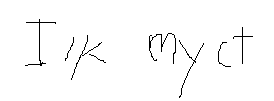 I ik myct